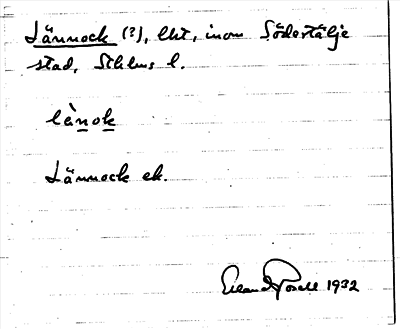 Lännock (?), lht, inom Södertälje
stad, Sthlms l.
lènok
Lännock ek.
Erland Rosell 1932